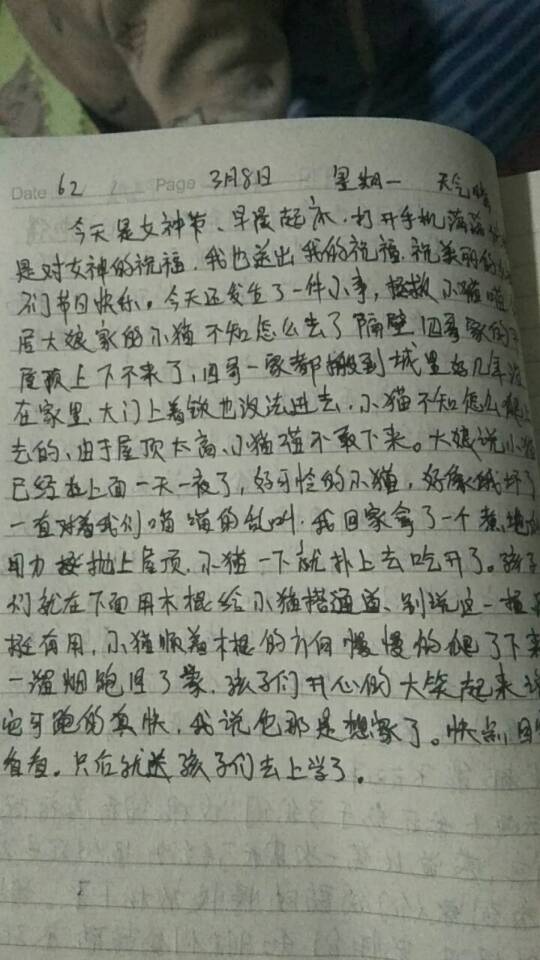 Date 62 Page 3月8日 星期一 天气晴
今天是女神节、早晨起床、打开手机满满
是对女神的祝福,我也送出我的祝福,祝美丽的
们节日快乐。今天还发生了一件小事,拯救小猫喵
居大娘家的小猫不知怎么去了隔壁四哥家的
屋顶上下不来了,四哥一家都搬到城里好几年没
在家里、大门上着锁也没法进去,小猫不知怎么爬上
去的、由于屋顶太高、小猫猫不敢下来。大娘说小猫
已经在上面一天一夜了,好可怜的小猫,好像饿坏了
一直对着我们喵喵的乱叫,我回家拿了一个煮
用力抛上屋顶,小猫一下就扑上去吃开了。孩子
们就在下面用木棍给小猫搭通道、别说这一招
挺有用,小猫顺着木棍的方向慢慢的爬了下来
一溜烟跑回了家,孩子们开心的大笑起来
它可跑的真快,我说它那是想家了。快点回
看看。只后就送孩子们去上学了。